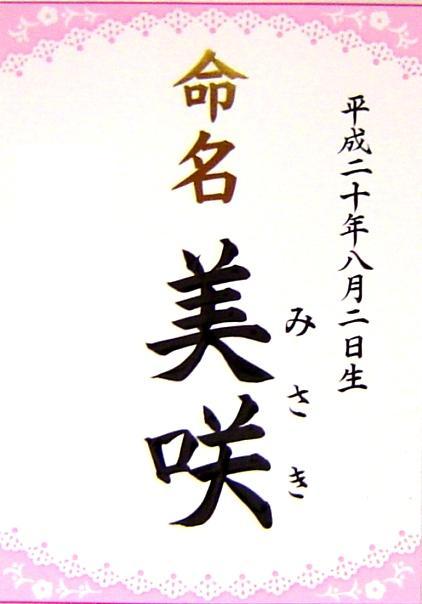 平成二十年八月二日生
命名
美咲
みさき